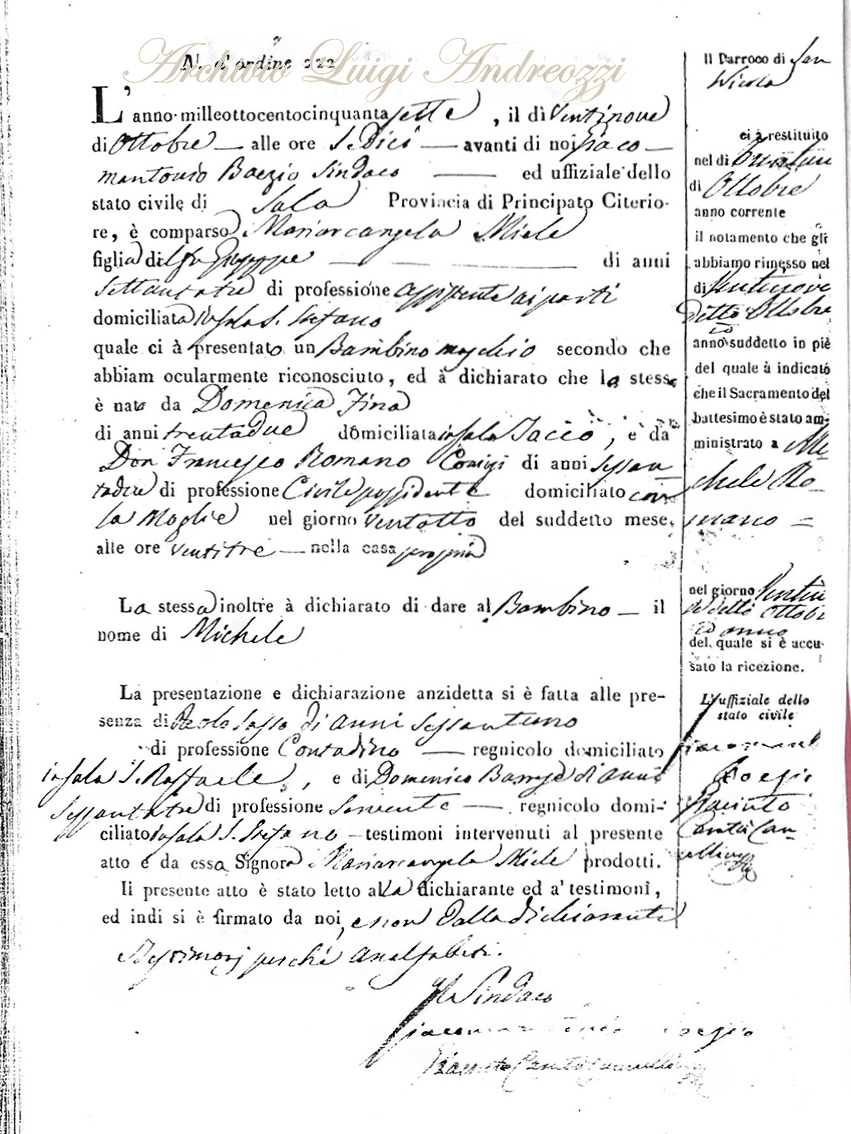 Archivio Luigi Andreozzi
N. d'ordine 222
L'anno milleottocentocinquantasette, il dì ventinove
di Ottobre — alle ore Sedici — avanti di noi Giaco-
mantonio Boezio Sindaco — ed uffiziale dello
stato civile di Sala Provincia di Principato Citerio-
re, è comparso Mariarcangela Miele
figlia di Giuseppe — di anni
Settantatre di professione assistente ai parti
domiciliata in Sala S. Stefano
quale ci à presentato un Bambino maschio secondo che
abbiam ocularmente riconosciuto, ed à dichiarato che la stessa
è nato da Domenica Fina
di anni trentadue domiciliata in Sala , e da
Don Francesco Romano Coniugi di anni sessan
di professione Civile possidente domiciliato con
la Moglie nel giorno ventotto del suddetto mese,
alle ore ventitre — nella casa propria
La stessa inoltre à dichiarato di dare al Bambino — il
nome di Michele
La presentazione e dichiarazione anzidetta si è fatta alle pre-
senza di Paolo di anni sessantuno
di professione Contadino — regnicolo domiciliato
in Sala S. Raffaele, e di Domenico di anni
Sessantatre di professione — regnicolo domi-
ciliato in Sala S. Stefano — testimoni intervenuti al presente
atto e da essa Signora Mariarcangela Miele prodotti.
Il presente atto è stato letto alla dichiarante ed a' testimoni,
ed indi si è firmato da noi, e non dalla dichiarante
e testimonj perché analfabeti.
Il Sindaco
Giacomantonio Boezio
Il Parroco di San
Nicola
ci à restituito
nel dì Trentuno
di Ottobre
anno corrente
il notamento che gli
abbiamo rimesso nel
dì Ventinove
detto Ottobre
anno suddetto in piè
del quale à indicato
che il Sacramento del
battesimo è stato am-
ministrato a Mi-
chele Ro-
mano =
nel giorno
detto Ottobre
ed anno
del quale si è accu-
sato la ricezione.
L'uffiziale dello
stato civile
Giacomant
Boezio
Giacinto